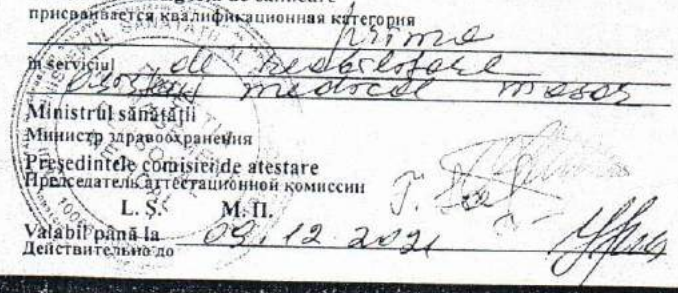 присваивается квалификационная категория
prima
în serviciul de reabilitare
asistent medical masor
Ministrul sănătății
Министр здравоохранения
Președintele comisiei de atestare
Председатель аттестационной комиссии
L. Ș. М. П.
Valabil până la 09.12.2021
Действительно до